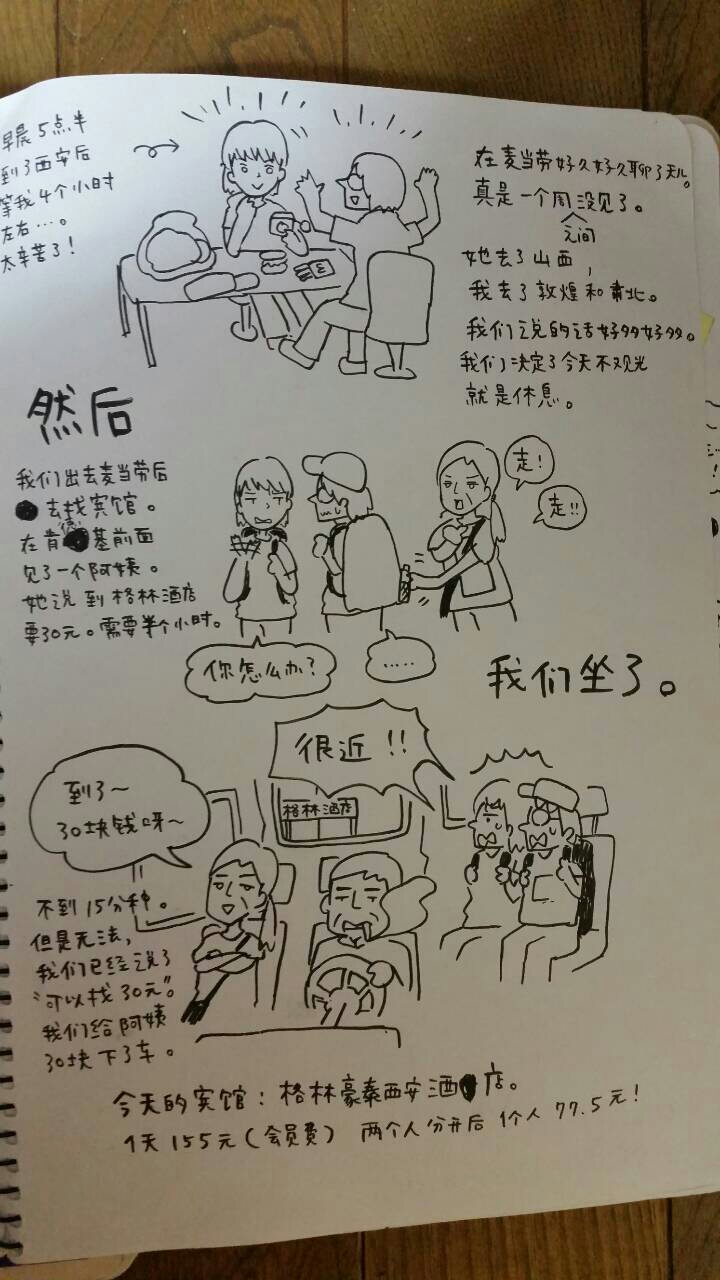 早晨5点半
到了西安后
等我4个小时
左右…。
太辛苦了!
在麦当劳好久好久聊了天儿。
真是一个周没见了。
之间
她去了山西,
我去了敦煌和青北。
我们说的话好多好多。
我们决定了今天不观光
就是休息。
然后
我们出去麦当劳后
去找宾馆。
在肯德基前面
见了一个阿姨。
她说到格林酒店
要30元。需要半个小时。
走!
走!!
你怎么办?
.....
我们坐了。
到了~
30块钱呀~
很近!!
格林酒店
不到15分种。
但是无法,
我们已经说了
“可以找30元”。
我们给阿姨
30块下了车。
今天的宾馆:格林豪泰西安酒店。
1天155元(会员费) 两个人分开后 1个人 77.5元!